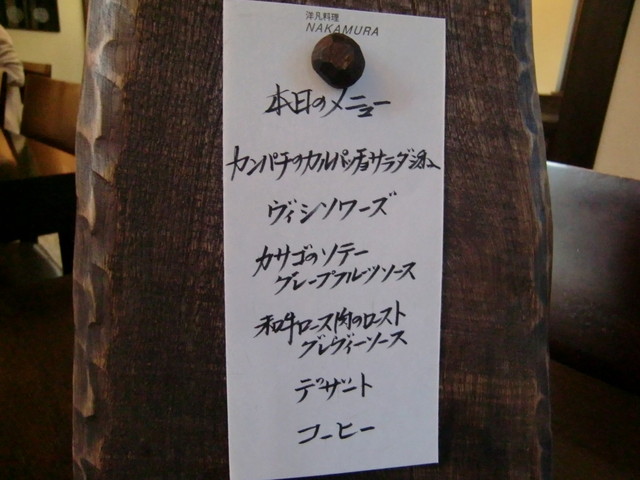 洋凡料理
NAKAMURA
本日のメニュー
カンパチのカルパッチョサラダ添え
ヴィシソワーズ
カサゴのソテー
グレープフルーツソース
和牛ロース肉のロースト
グレヴィーソース
デザート
コーヒー